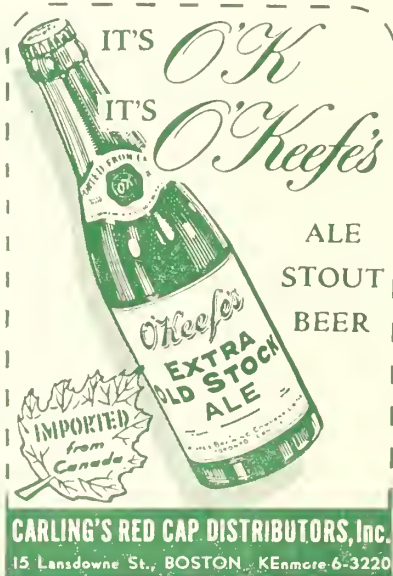 IT'S O'K
IT'S O'Keefe's
ALE
STOUT
BEER
IMPORTED FROM
OK
O'Keefe's
EXTRA
OLD STOCK
ALE
IMPORTED
from
Canada
CARLING'S RED CAP DISTRIBUTORS, Inc.
15 Lansdowne St., BOSTON KEnmore 6-3220